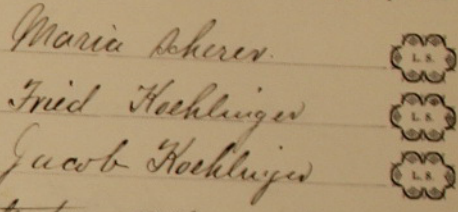 Maria Scherer. L. S.
Fried Koehlinger L. S.
Jacob Koehlinger L. S.